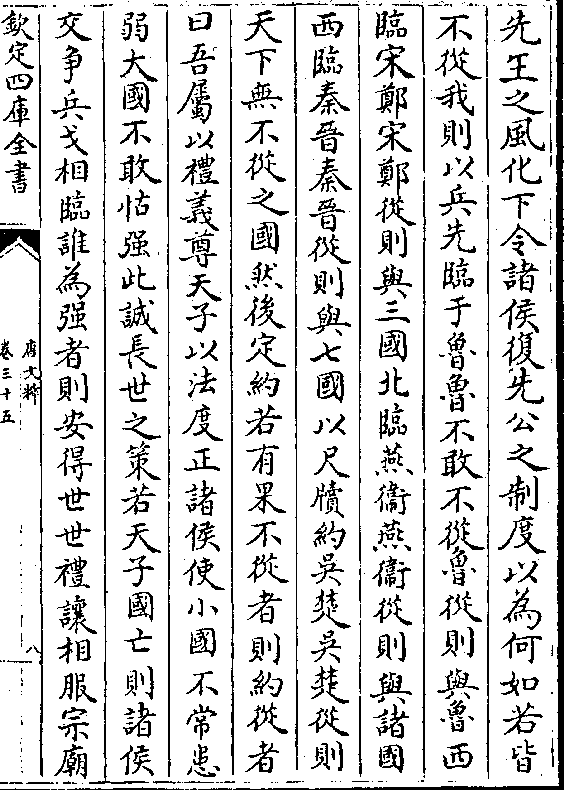 先王之風化下令諸侯復先公之制度以為何如若皆
不從我則以兵先臨于魯魯不敢不從魯從則與魯西
臨宋鄭宋鄭從則與三國北臨燕衞燕衞從則與諸國
西臨秦晉秦晉從則與七國以尺牘約吳楚吳楚從則
天下無不從之國然後定約若有果不從者則約從者
曰吾屬以禮義尊天子以法度正諸侯使小國不常患
弱大國不敢怙强此誠長世之策若天子國亡則諸侯
交爭兵戈相臨誰為强者則安得世世禮讓相服宗廟
欽定四庫全書
唐文粹
卷三十五
八